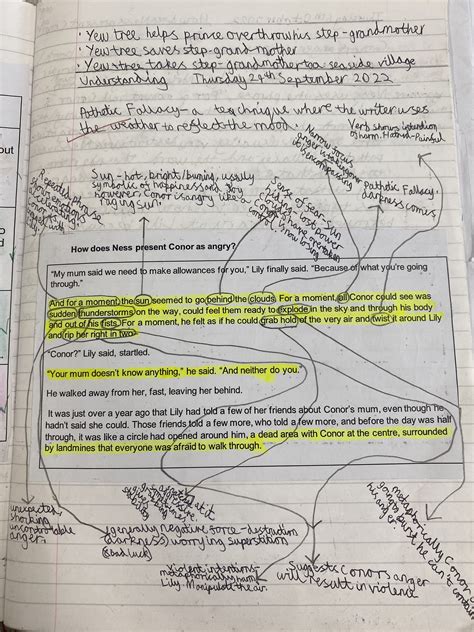 · Yew tree helps prince overthrow his step-grandmother
· Yew tree saves step-grand-mother
· Yew tree takes step-grandmother to a sea side village
Understanding Thursday 29th September 2022
Pathetic Fallacy - a technique where the writer uses
the weather to reflect the mood.
Sun - hot, bright/burning, usually
symbolic of happiness and joy
however Conor is angry like a
raging sun.
Narrow focus
anger is
Verb showing intention
of harm. Hatred - Painful
Pathetic Fallacy,
darkness comes
Sense of fear - sun
hiding - lost power
How does Ness present Conor as angry?
"My mum said we need to make allowances for you," Lily finally said. "Because of what you're going
through."
And for a moment, the sun seemed to go behind the clouds. For a moment, all Conor could see was
sudden thunderstorms on the way, could feel them ready to explode in the sky and through his body
and out of his fists. For a moment, he felt as if he could grab hold of the very air and twist it around Lily
and rip her right in two.
"Conor?" Lily said, startled.
"Your mum doesn't know anything," he said. "And neither do you."
He walked away from her, fast, leaving her behind.
It was just over a year ago that Lily had told a few of her friends about Conor's mum, even though he
hadn't said she could. Those friends told a few more, who told a few more, and before the day was half
through, it was like a circle had opened around him, a dead area with Conor at the centre, surrounded
by landmines that everyone was afraid to walk through.
unexpected,
shocking
uncontrollable
anger.
generally negative force - destruction
(darkness) worrying superstition
(bad luck)
Violent intentions
metaphorically harm
Lily. Manipulate the air.
Suggests Conor's anger
will result in violence
metaphorically Conor
his anger burst he can't contain